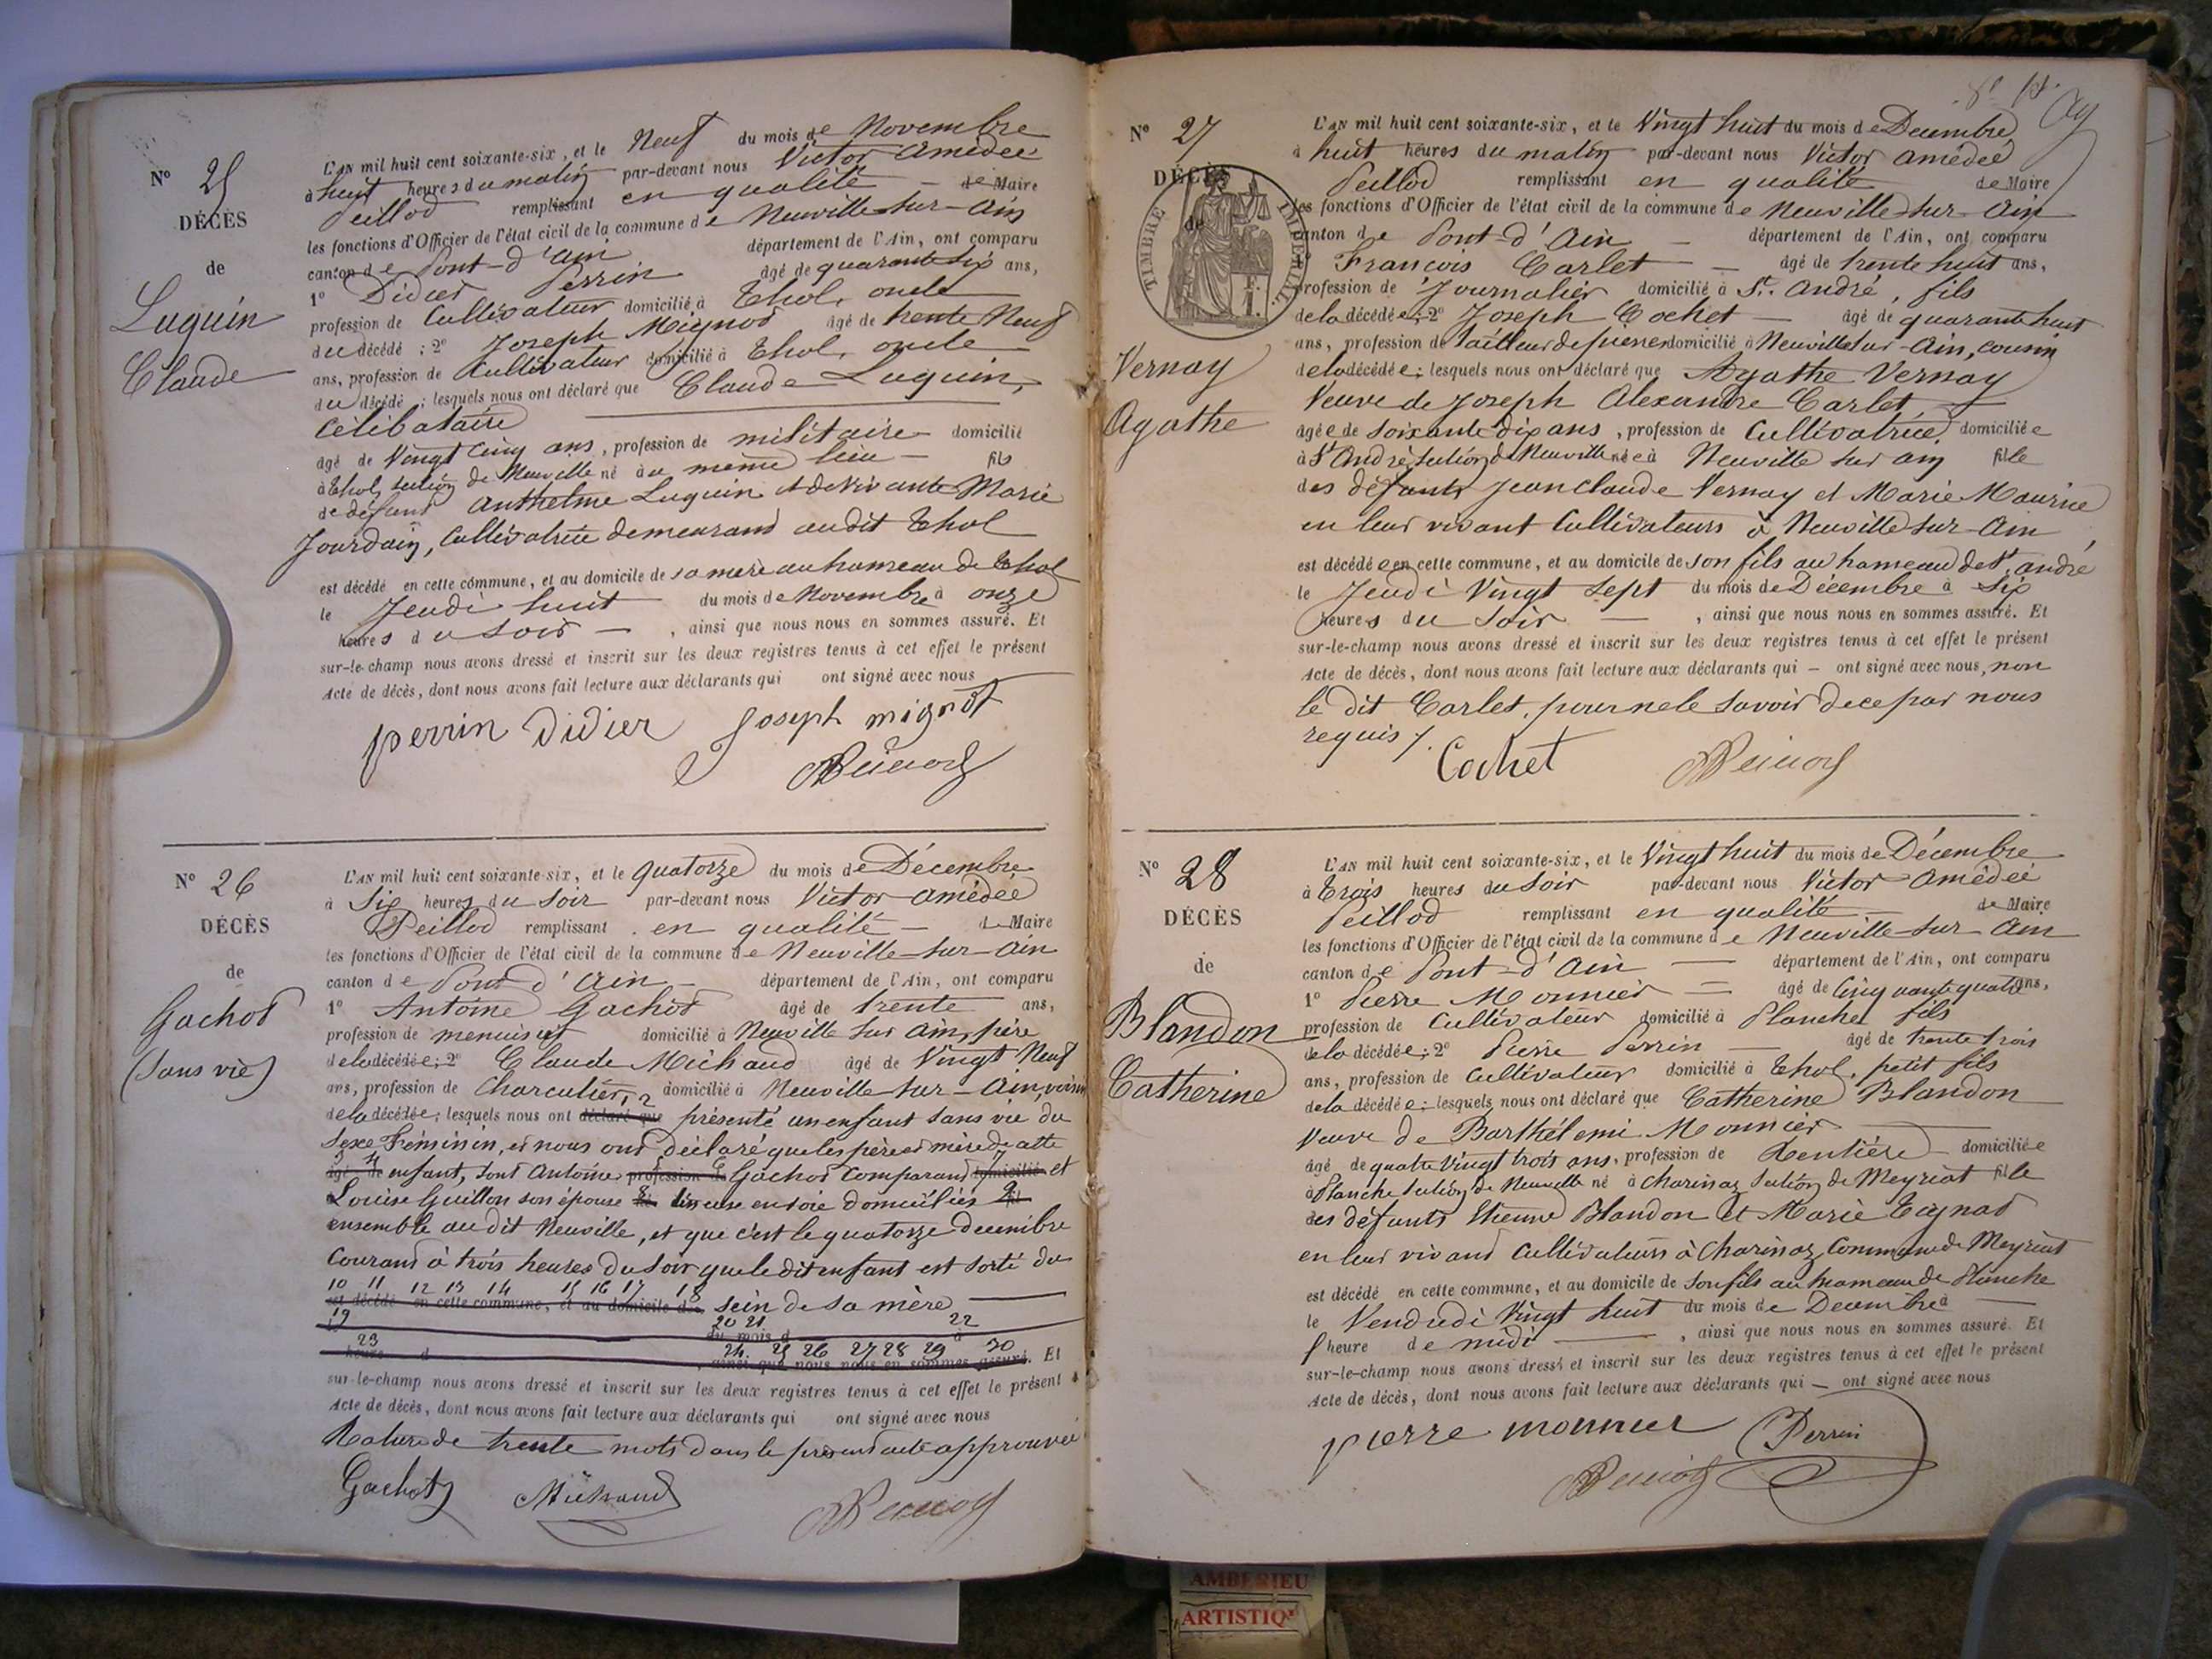 Nº 25
DÉCÈS
de
Luquin
Claude
L'AN mil huit cent soixante-six, et le Neuf du mois de Novembre
à huit heures du matin par-devant nous Victor Amédée
Peillod remplissant en qualité de Maire
les fonctions d'Officier de l'état civil de la commune de Neuville-sur-Ain
canton de Pont-d'Ain département de l'Ain, ont comparu
1º Didier Perrin âgé de quarante six ans,
profession de Cultivateur domicilié à Thol, oncle
du décédé ; 2º Joseph Mignot âgé de trente Neuf
ans, profession de Cultivateur domicilié à Thol, oncle
du décédé ; lesquels nous ont déclaré que Claude Luquin,
Célibataire
âgé de Vingt Cinq ans, profession de militaire domicilié
à Thol, section de Neuville né au même lieu fils
de défunt Anthelme Luquin et de vivante Marie
Jourdain, Cultivatrice demeurant audit Thol
est décédé en cette commune, et au domicile de sa mère au hameau de Thol
le Jeudi huit du mois de Novembre à onze
heures du soir , ainsi que nous nous en sommes assuré. Et
sur-le-champ nous avons dressé et inscrit sur les deux registres tenus à cet effet le présent
Acte de décès, dont nous avons fait lecture aux déclarants qui ont signé avec nous
perrin Didier Joseph mignot
Peillod
Nº 26
DÉCÈS
de
Gachot
(Sans vie)
L'AN mil huit cent soixante-six, et le quatorze du mois de Décembre
à Six heures du soir par-devant nous Victor Amédée
Peillod remplissant en qualité de Maire
les fonctions d'Officier de l'état civil de la commune de Neuville-sur-Ain
canton de Pont-d'Ain département de l'Ain, ont comparu
1º Antoine Gachot âgé de trente ans,
profession de menuisier domicilié à Neuville sur Ain, père
de la décédée ; 2º Claude Michaud âgé de Vingt Neuf
ans, profession de Charcutier, domicilié à Neuville-sur-Ain, voisin
de la décédée ; lesquels nous ont déclaré que présenté un enfant sans vie du
sexe Féminin, et nous ont déclaré que les père et mère de cette
âgé de enfant, sont Antoine profession de Gachot comparant domicilié et
Louise Guillon son épouse née liseuse en soie domiciliés fil
ensemble au dit Neuville, et que c'est le quatorze decembre
Courant à trois heures du soir que ledit enfant est sorti du
10 11 12 13 14 15 16 17 18
est décédé en cette commune, et au domicile de sein de sa mère
19 20 21 22
du mois d à
23 24 25 26 27 28 29 30
heure d , ainsi que nous nous en sommes assuré. Et
sur-le-champ nous avons dressé et inscrit sur les deux registres tenus à cet effet le présent
Acte de décès, dont nous avons fait lecture aux déclarants qui ont signé avec nous
Rature de trente mots dans le présent acte approuvée
Gachot Michaud Peillod
Nº 27
DÉCÈS
de
TIMBRE IMPÉRIAL
Vernay
Agathe
L'AN mil huit cent soixante-six, et le Vingt huit du mois de Decembre
à huit heures du matin par-devant nous Victor Amédée
Peillod remplissant en qualité de Maire
les fonctions d'Officier de l'état civil de la commune de Neuville-sur-Ain
canton de Pont-d'Ain département de l'Ain, ont comparu
François Carlet âgé de trente huit ans,
profession de Journalier domicilié à St. André, fils
de la décédée ; 2º Joseph Cochet âgé de quarante huit
ans, profession de tailleur de pierres domicilié à Neuville sur-Ain, cousin
de la décédée ; lesquels nous ont déclaré que Agathe Vernay
Veuve de Joseph Alexandre Carlet,
âgée de soixante dix ans, profession de Cultivatrice, domiciliée
à St André, section de Neuville née à Neuville sur ain fille
des défunts Jean Claude Vernay et Marie Maurice
en leur vivant Cultivateurs à Neuville-sur-Ain,
est décédée en cette commune, et au domicile de son fils au hameau de St. andré
le Jeudi Vingt Sept du mois de Décembre à six
heures du soir , ainsi que nous nous en sommes assuré. Et
sur-le-champ nous avons dressé et inscrit sur les deux registres tenus à cet effet le présent
Acte de décès, dont nous avons fait lecture aux déclarants qui – ont signé avec nous, non
le dit Carlet, pour ne le savoir de ce par nous
requis /.
Cochet Peillod
Nº 28
DÉCÈS
de
Blandon
Catherine
L'AN mil huit cent soixante-six, et le Vingt huit du mois de Décembre
à trois heures du soir par-devant nous Victor Amédée
Peillod remplissant en qualité de Maire
les fonctions d'Officier de l'état civil de la commune de Neuville-sur-Ain
canton de Pont-d'Ain département de l'Ain, ont comparu
1º Pierre Monnier âgé de Cinquante quatre ans,
profession de Cultivateur domicilié à Planche, fils
de la décédée ; 2º Pierre Perrin âgé de trente trois
ans, profession de Cultivateur domicilié à Thol, petit fils
de la décédée ; lesquels nous ont déclaré que Catherine Blandon
Veuve de Barthélemi Monnier
âgé de quatre Vingt trois ans, profession de Rentière domiciliée
à Planche section de Neuville né à Charinaz section de Meyriat fille
des défunts Etienne Blandon et Marie Tignat
en leur vivant Cultivateurs à Charinaz, Commune de Meyriat
est décédé en cette commune, et au domicile de son fils au hameau de Planche
le Vendredi Vingt huit du mois de Decembre à
l'heure de midi , ainsi que nous nous en sommes assuré. Et
sur-le-champ nous avons dressé et inscrit sur les deux registres tenus à cet effet le présent
Acte de décès, dont nous avons fait lecture aux déclarants qui – ont signé avec nous
pierre monnier Perrin
Peillod
AMBERIEU
ARTISTIQ